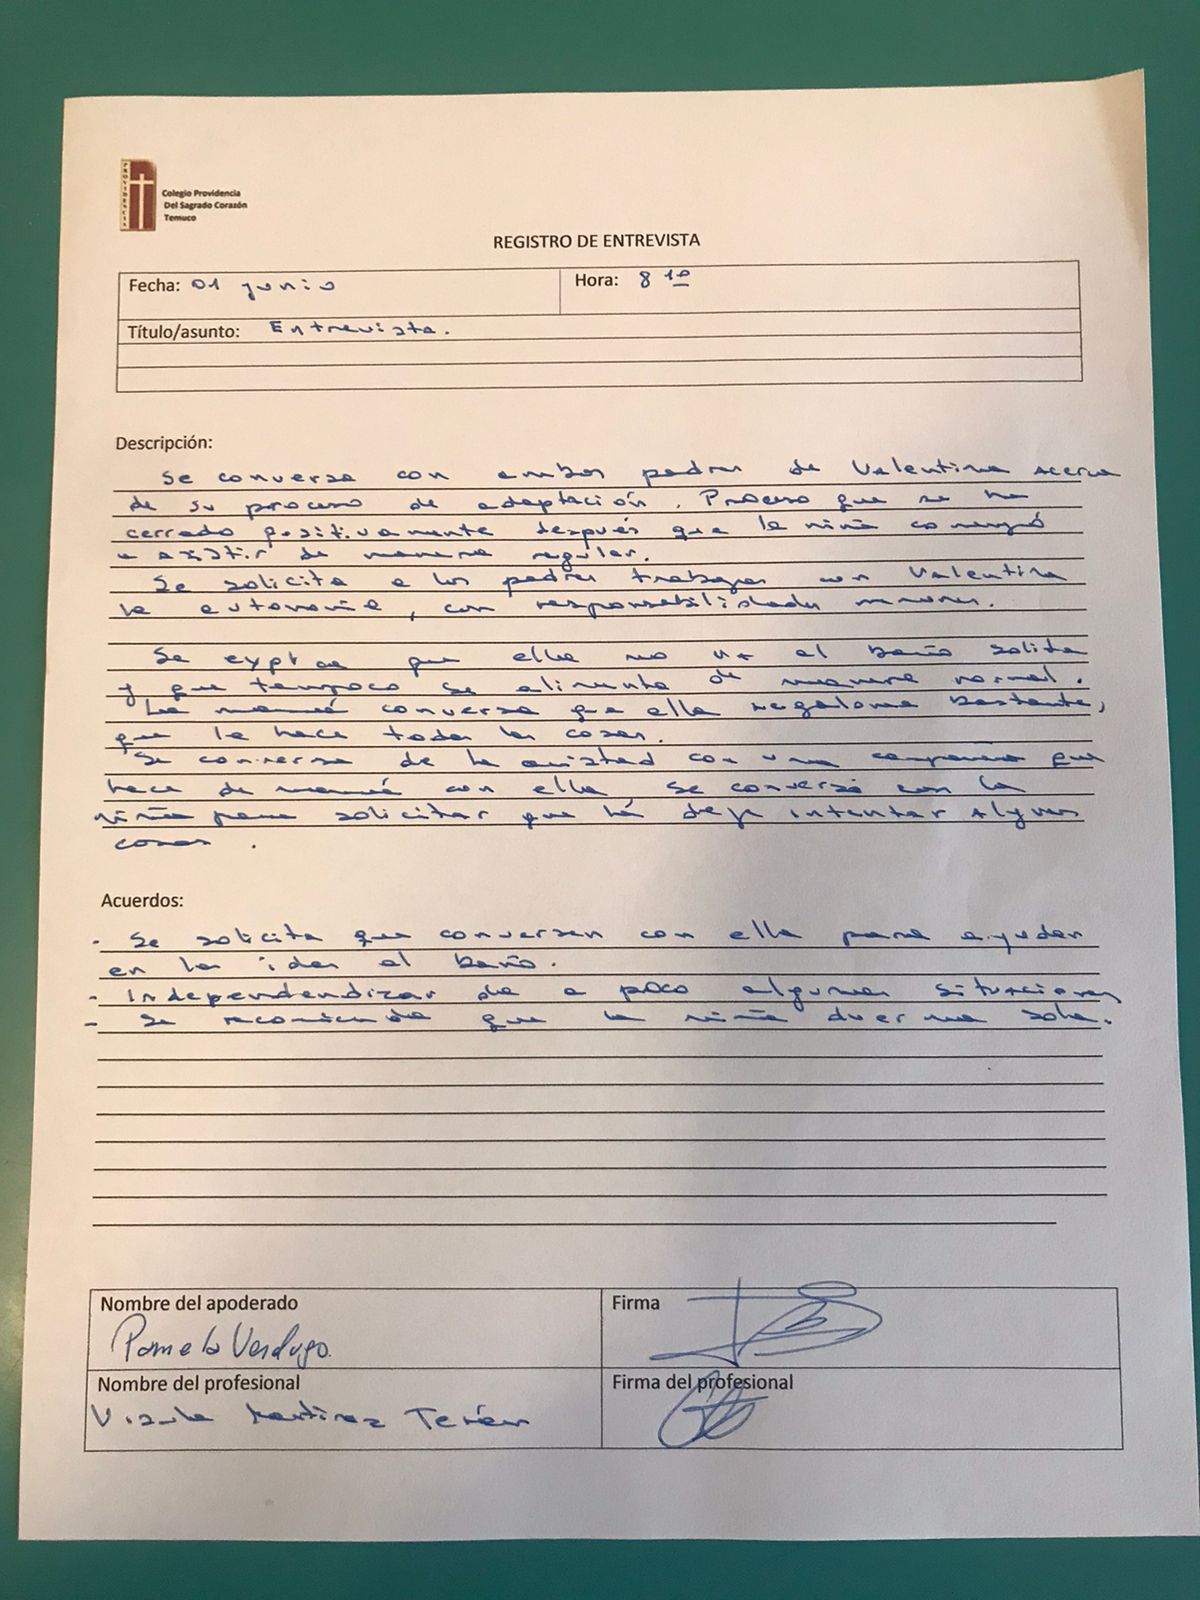 PROVIDENCIA
Colegio Providencia
Del Sagrado Corazón
Temuco
REGISTRO DE ENTREVISTA
Fecha: 01 junio
Hora: 8 10
Título/asunto: Entrevista.
Descripción:
Se conversa con ambos padres de Valentina acerca
de su proceso de adaptación. Proceso que se ha
cerrado positivamente después que la niña comenzó
a asistir de manera regular.
Se solicita a los padres trabajar con Valentina
la autonomía, con responsabilidades menores.
Se explica que ella no va al baño solita
y que tampoco se alimenta de manera normal.
La mamá conversa que ella regalona bastante,
que le hace todas las cosas.
Se conversa de la amistad con una compañera que
hace de mamá con ella, se conversó con la
niña para solicitar que la deje intentar algunas
cosas.
Acuerdos:
- Se solicita que conversen con ella para ayudar
en las idas al baño.
- Independendizar de a poco algunas situaciones
- Se recomienda que la niña duerma sola.
Nombre del apoderado
Pamela Verdugo.
Firma
Nombre del profesional
Martínez Terán
Firma del profesional